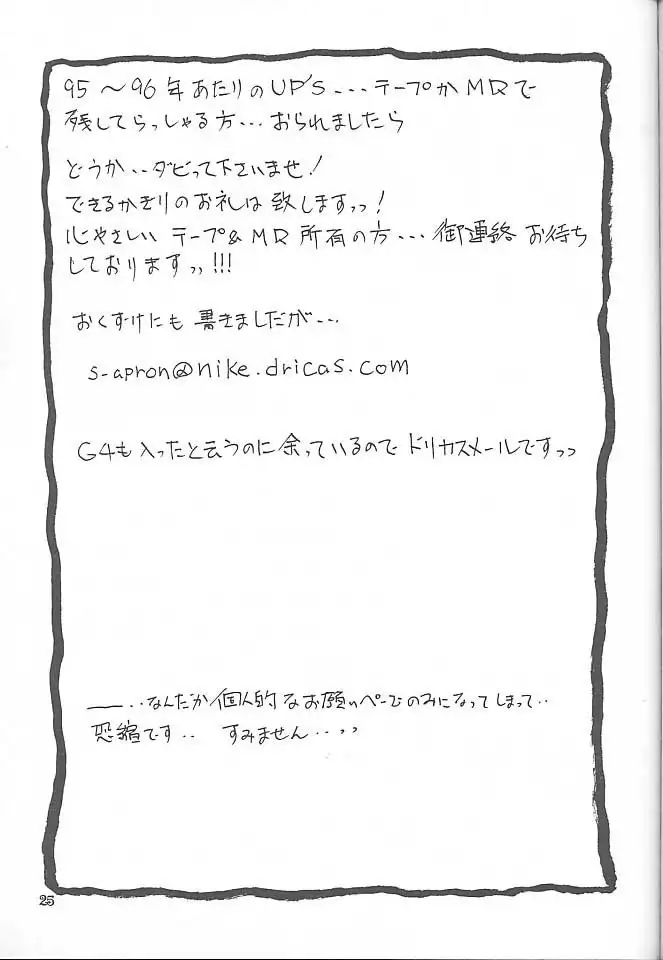 95～96年あたりのUP'S...テープかMDで
残してらっしゃる方...おられましたら
どうか..ダビって下さいませ!
できるかぎりのお礼は致しますっっ!
心やさしい テープ&MD所有の方...御連絡お待ち
しておりますっっ!!!
おくずけにも 書きましたが...
s-apron@nike.dricas.com
G4も入ったと云うのに余っているので ドリカスメールですっっ
――..なんだか個人的なお願いページのみになってしまって..
恐縮です.. すみません..っっ
25